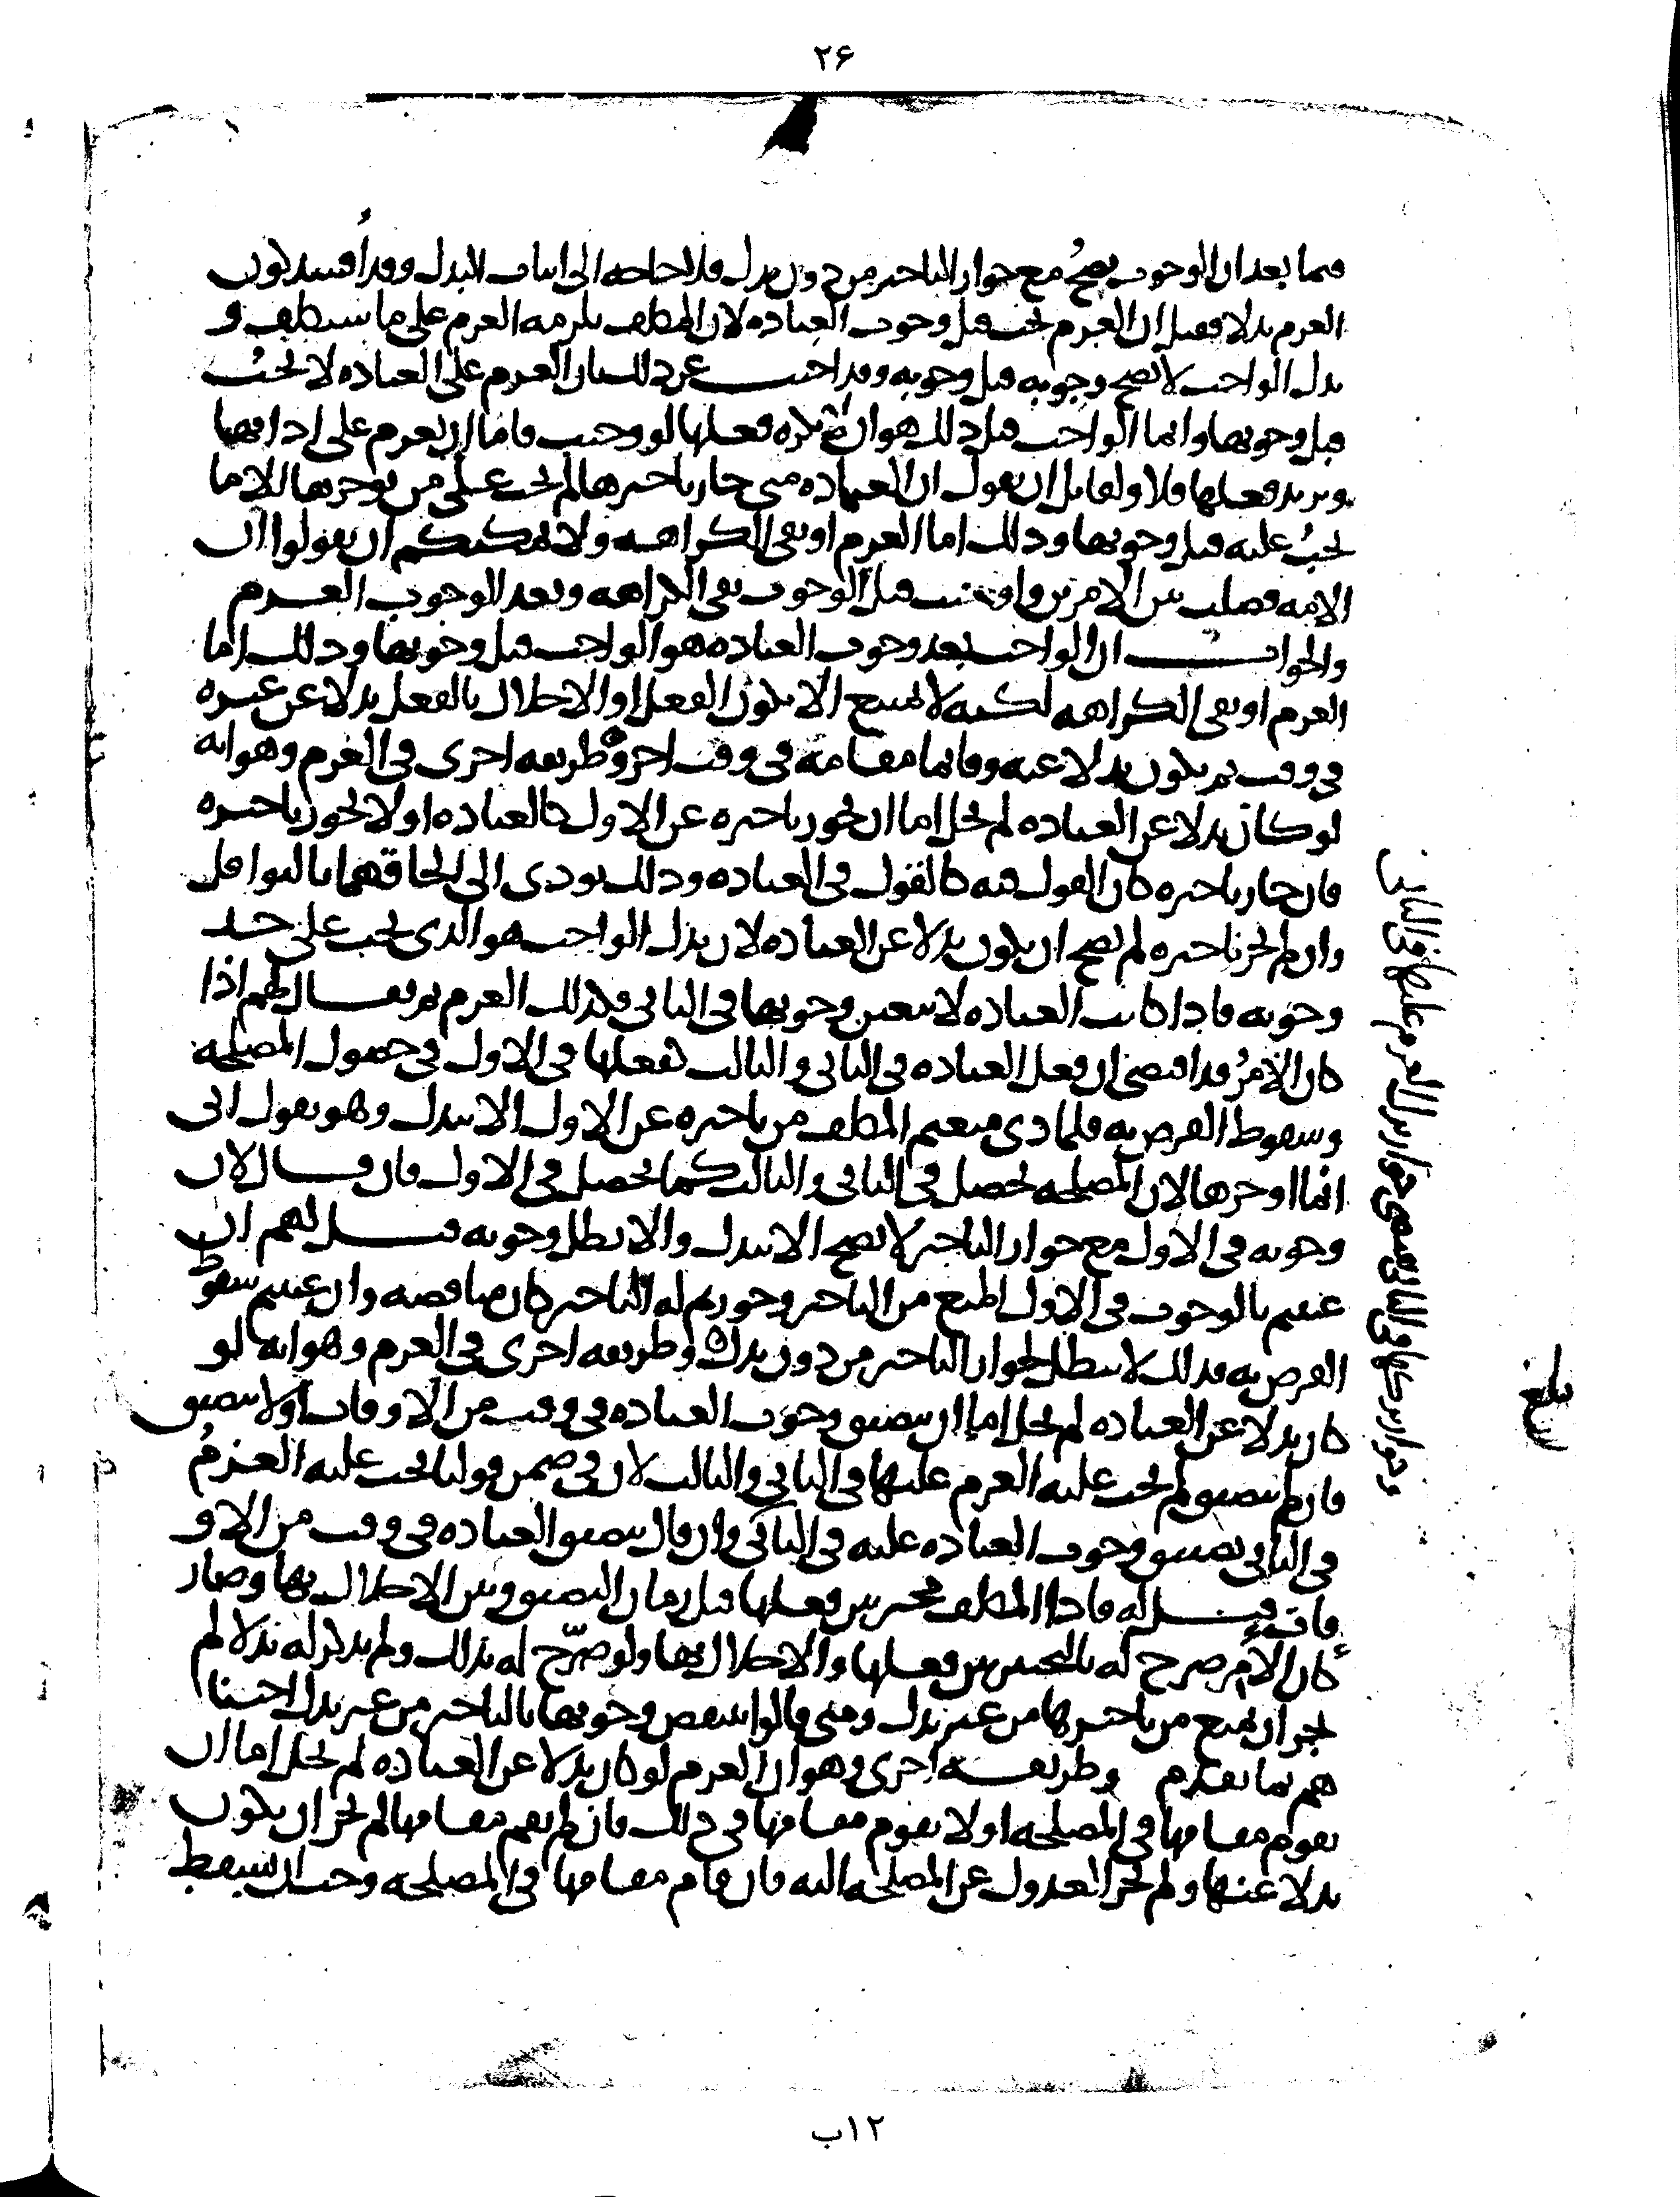 ٢۶
فيما بعد ان الوجوب يصحُّ مع جواز التاخير من دون بدل فلا حاجه الى اثبات البدل وقد اُفسد كون
العزم بدلا فقيل ان العزم يجب قبل وجوب العباده لان المكلف يلزمه العزم على ما سيكلف و
بدل الواجب لا يصح وجوبه قبل وجوبه وقد اجيب عن ذلك بان العزم على العباده لا يجب
قبل وجوبها وانما الواجب قبل ذلك هو ان لا يكره فعلها لو وجبت فاما ان يعزم على ادائها
ويريد فعلها فلا ولقايل ان يقول ان العباده متى جاز تاخيرها لم يجب على من يوخرها الا ما
يجبُ عليه قبل وجوبها وذلك اما العزم او نفى الكراهه ولا يمكنكم ان يقولوا ان
الامه فصلت بين الامرين واوجبت قبل الوجوب نفى الكراهه وبعد الوجوب العزم
والجواب ان الواجب بعد وجوب العباده هو الواجب قبل وجوبها وذلك اما
العزم او نفى الكراهه لكنه لا يمتنع الا يكون الفعل او الاخلال بالفعل بدلا عن غيره
فى وقت ثم يكون بدلا عنه وقايما مقامه فى وقت اخر وطريقه اخرى فى العزم وهو انه
لو كان بدلا عن العباده لم يخل اما ان يجوز تاخيره عن الاول كالعباده او لا يجوز تاخيره
فان جاز تاخيره كان القول فيه كالقول فى العباده وذلك يودى الى الحاقهما بالنوافل
وان لم يجز تاخيره لم يصح ان يكون بدلا عن العباده لان بدل الواجب هو الذى يجب على حد
وجوبه فاذا كانت العباده لا يتعين وجوبها فى الثانى فكذلك العزم ثم يقال لهم اذا
كان الامرُ قد اقتضى ان فعل العباده فى الثانى والثالث كفعلها فى الاول فى حصول المصلحه
وسقوط الفرض به فلماذى منعتم المكلف من تاخيره عن الاول الا ببدل وهو يقول انى
انما اوخرها لان المصلحه تحصل فى الثانى والثالث كما تحصل فى الاول فان قال لان
وجوبه فى الاول مع جواز التاخير لا يصح الا ببدل والا بطل وجوبه قيل لهم ان
عنيتم بالوجوب فى الاول المنع من التاخير وجوزتم له التاخير كان مناقضه وان عنيتم سقوط
الفرض به فذلك لا يبطل بجواز التاخير من دون بدل وطريقه اخرى فى العزم وهو انه لو
كان بدلا عن العباده لم يخل اما ان يتضيق وجوب العباده فى وقت من الاوقات او لا يتضيق
فان لم يتضيق لم يجب عليه العزم عليها فى الثانى والثالث لان فى ضمن قولنا يجب عليه العزمُ
فى الثانى تضييق وجوب العباده عليه فى الثانى وان قال يتضيق العباده فى وقت من الاو
قات قيل له فاذا المكلف مخير بين فعلها قبل زمان التضيق وبين الاخلال بها وصار
كان الامر صرح له بالتخيير بين فعلها والاخلال بها ولو صرّح له بذلك ولم يذكر له بدلا لم
يجز ان يمنع من تاخيرها من غير بدل ومتى قالوا ينتقض وجوبها بالتاخير من غير بدل اجبنا
هم بما تقدم وطريقه اخرى وهو ان العزم لو كان بدلا عن العباده لم يخل اما ان
يقوم مقامها فى المصلحه او لا يقوم مقامها فى ذلك فان لم يقم مقامها لم يجز ان يكون
بدلا عنها ولم يجز العدول عن المصلحه اليه فان قام مقامها فى المصلحه وجب ان يسقط
بلغ
١٢ب